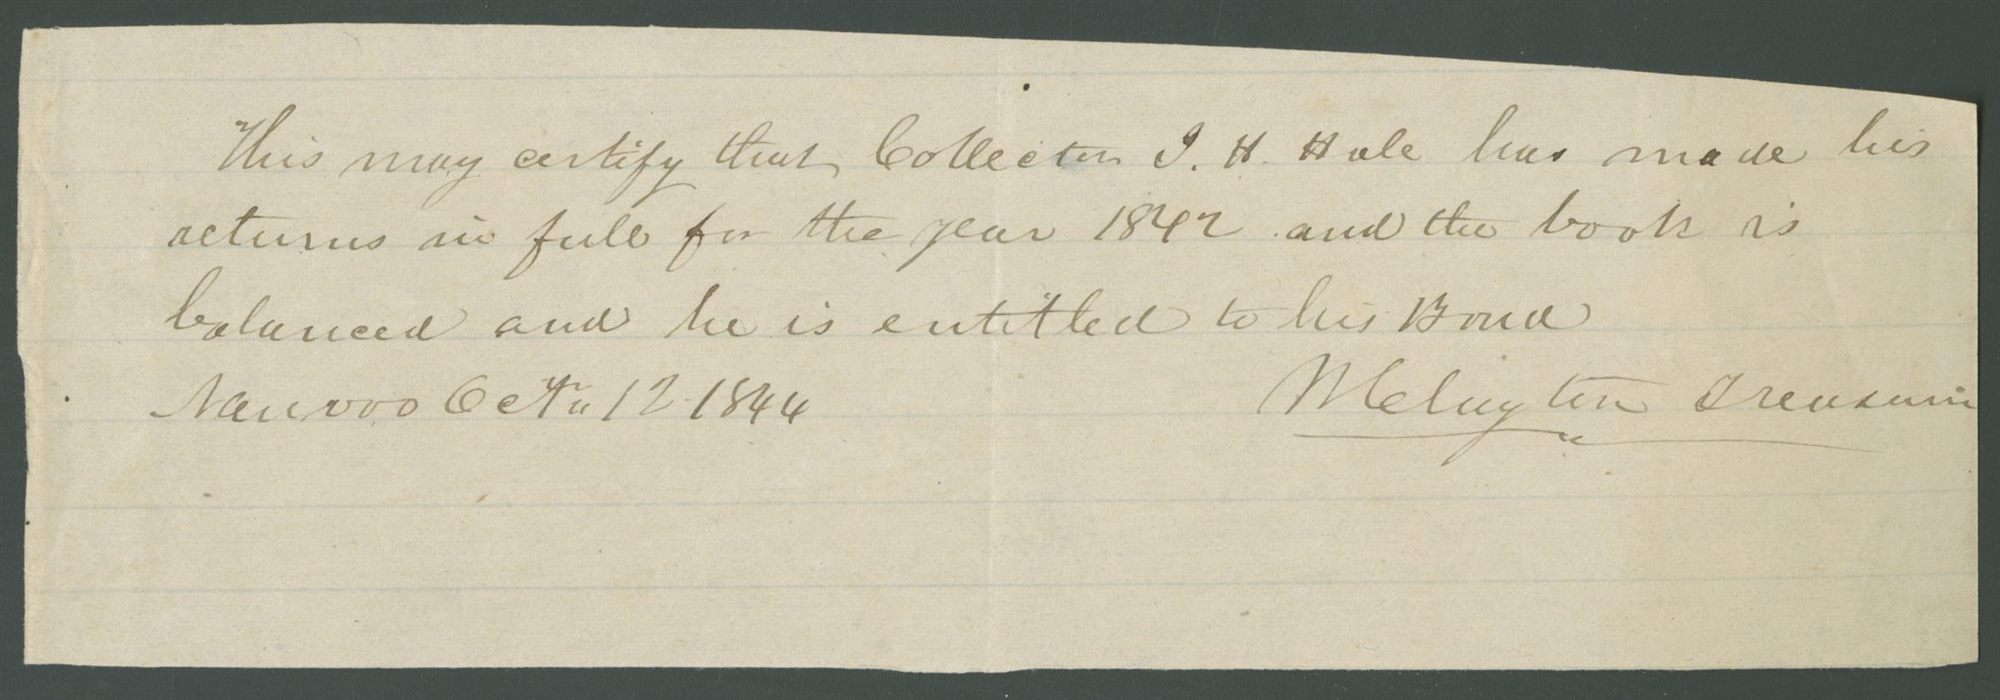 This may certify that Collector J. H. Hale has made his
returns in full for the year 1842 and the book is
balanced and he is entitled to his Bond
Nauvoo 12 1844 Clayton Treasurer